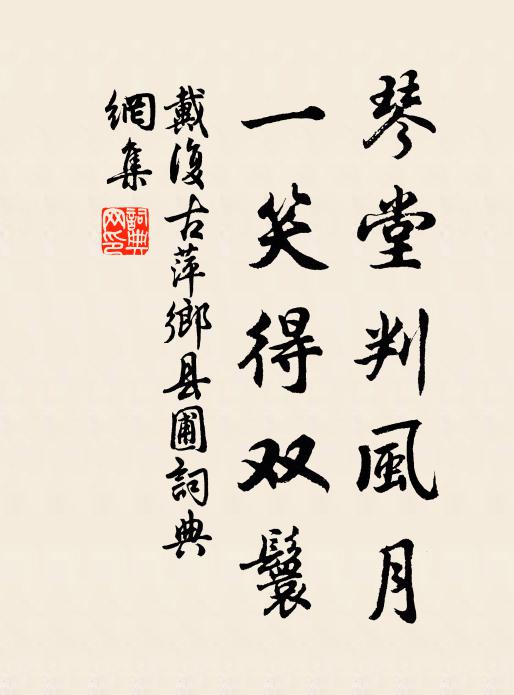 琴堂判風月
一笑得双鬟
戴復古萍鄉县圃詞典
網集
詞典网印